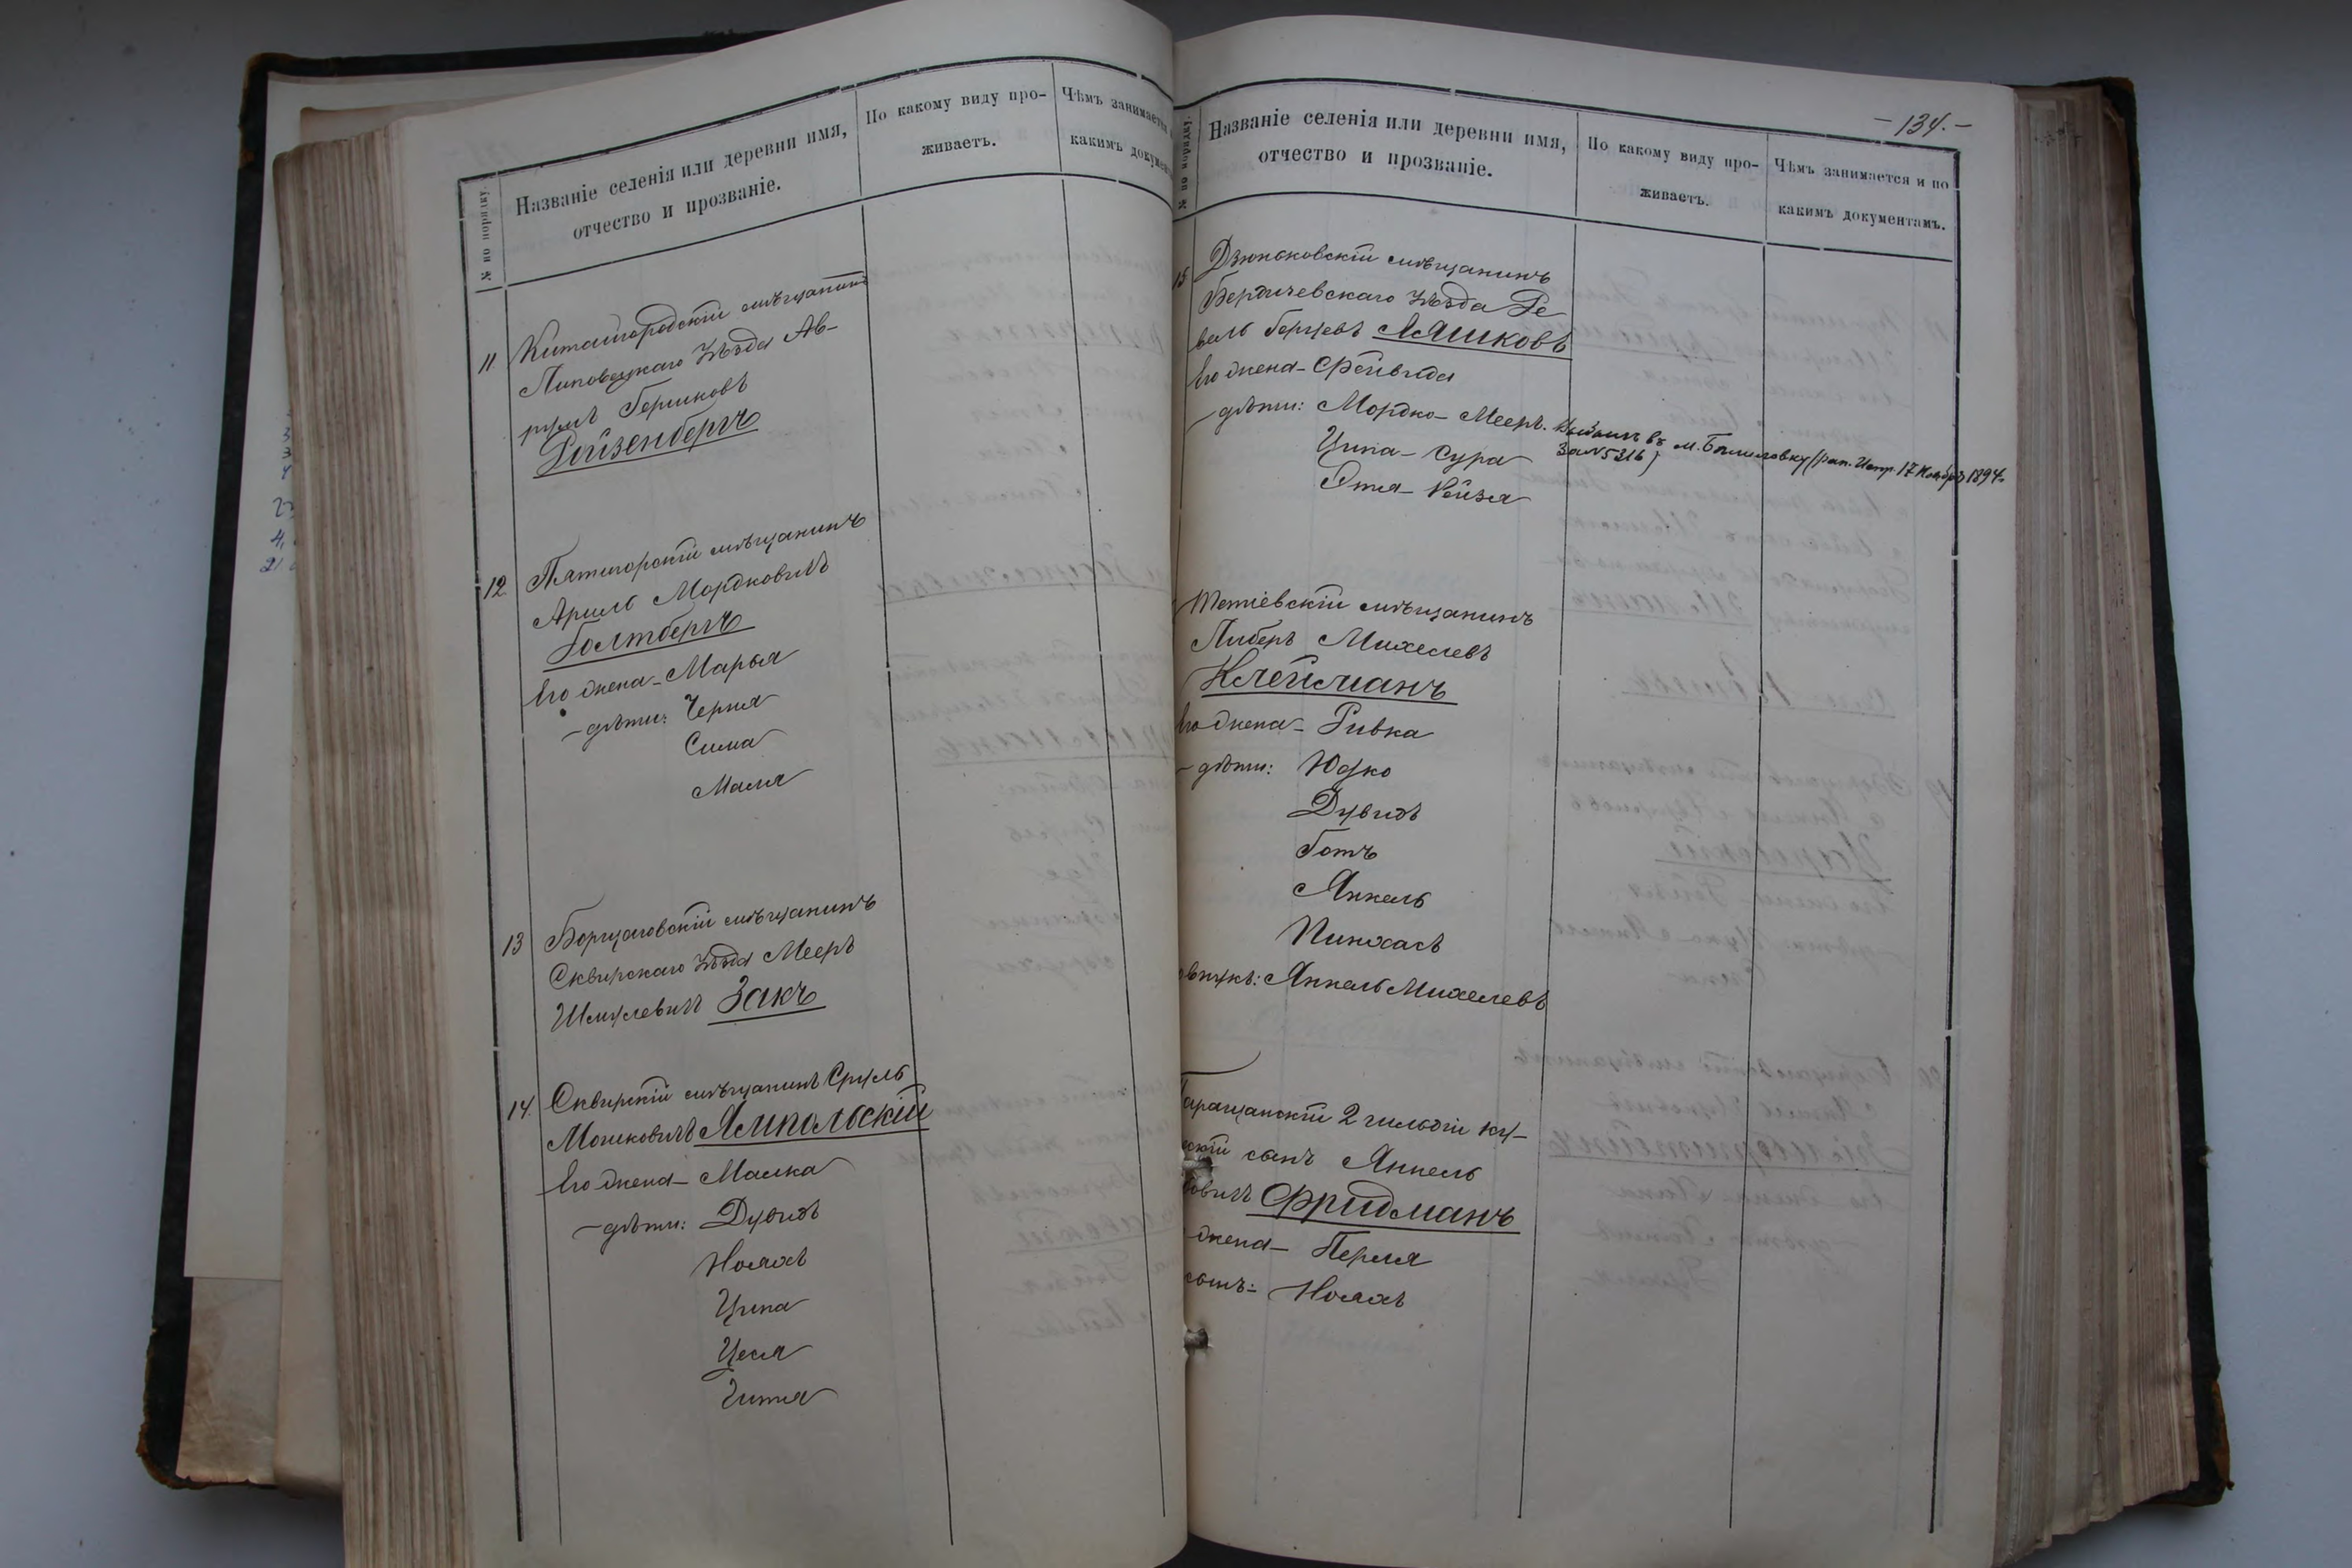 № по порядку.
Названіе селенія или деревни имя,
отчество и прозваніе.
По какому виду про-
живаетъ.
Чѣмъ занимается
какимъ докумен
11 Китайгородскій мѣщанинъ
Липовецкаго Уѣзда Ав-
румъ Гершковъ
Ройзенбергъ
12 Пятигорскій мѣщанинъ
Аршль Мордковичъ
Голтбергъ
Его жена - Марья
- дѣти: Черня
Сима
Маля
13 Борщаговскій мѣщанинъ
Сквирскаго Уѣзда Мееръ
Шмулевичъ Закъ
14. Сквирскій мѣщанинъ Сруль
Мошковичъ Ямпольскій
Его жена - Малка
- дѣти: Дувидъ
Нояхъ
Ципа
Цеся
Гитля
- 134. -
№ по порядку.
Названіе селенія или деревни имя,
отчество и прозваніе.
По какому виду про-
живаетъ.
Чѣмъ занимается и по
какимъ документамъ.
15 Дзюньковскій мѣщанинъ
Бердичевскаго Уѣзда Ре
вель Герцевъ Ляшковъ
Его жена - Фейвида
- дѣти: Мордко - Мееръ. Выбылъ въ м. Балиловку (рап. Испр. 17 Ноября 1894
Ципа - Сура за № 5316)
Этля - Рейзя
Тетіевскій мѣщанинъ
Либеръ Михелевъ
Клейманъ
Его жена - Ривка
- дѣти: Юдко
Дувидъ
Готъ
Янкель
Пинхасъ
внукъ: Янкель Михелевъ
Таращанскій 2 гильдіи ку-
ескій сынъ Янкель
овичъ Фридманъ
жена - Перля
сынъ: - Нояхъ